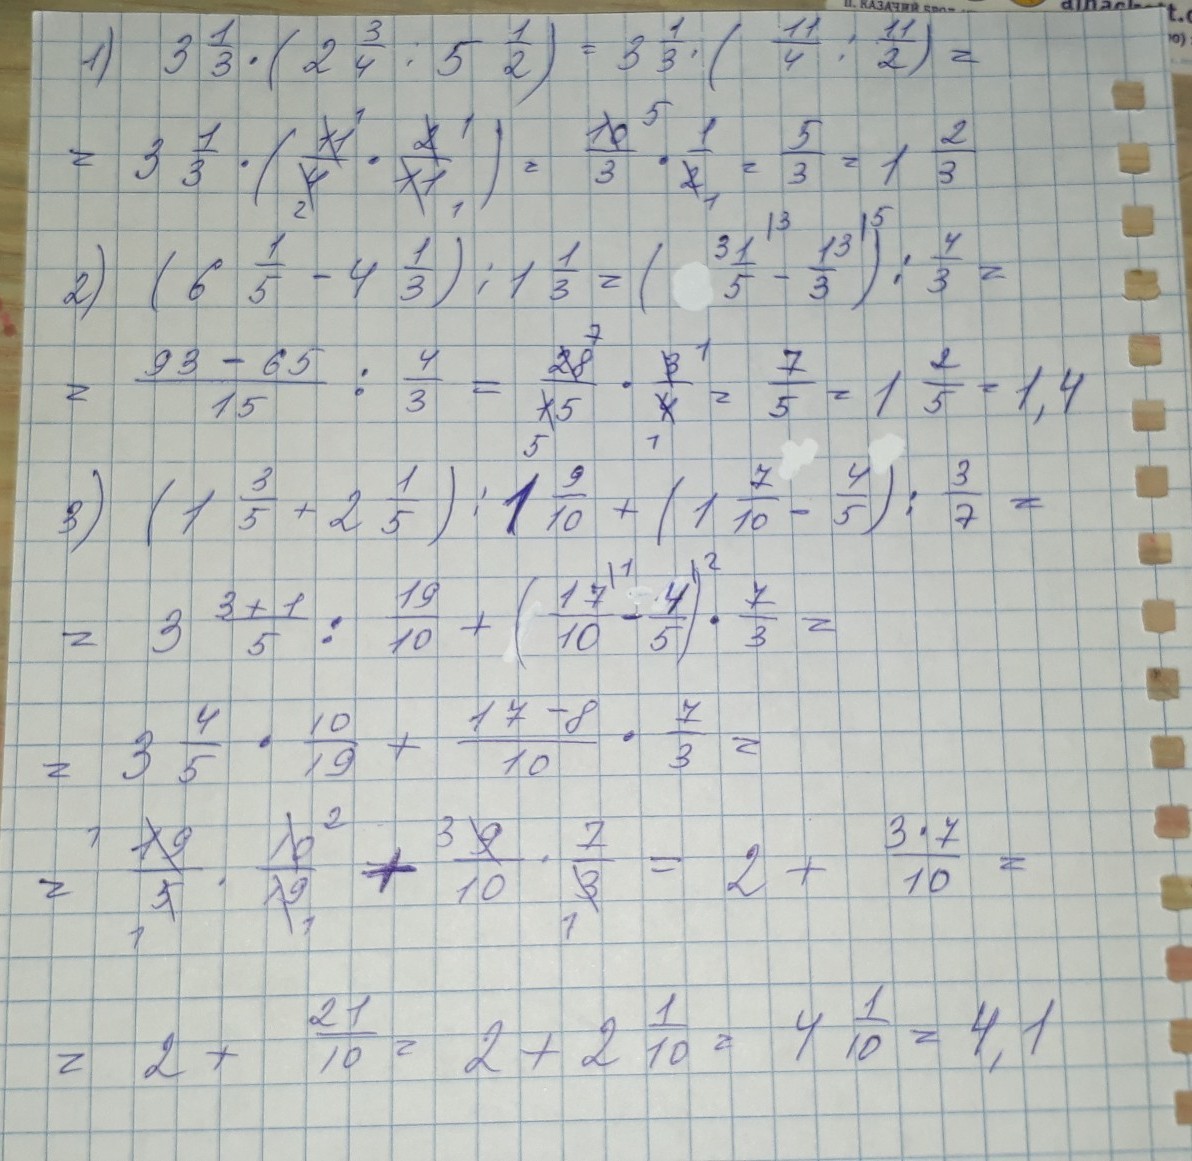 П. КАЗАЧИЙ БРОД
1) 3 1/3 · (2 3/4 : 5 1/2) = 3 1/3 · (11/4 : 11/2) =
= 3 1/3 · (11/4 · 2/11) = 10/3 · 1/2 = 5/3 = 1 2/3
2) (6 1/5 - 4 1/3) : 1 1/3 = (31/5 |3 - 13/3 |5) : 4/3 =
= (93 - 65)/15 : 4/3 = 28/15 · 3/4 = 7/5 = 1 2/5 = 1,4
3) (1 3/5 + 2 1/5) : 1 9/10 + (1 7/10 - 4/5) : 3/7 =
= 3 (3 + 1)/5 : 19/10 + (17/10 |1 - 4/5 |2) · 7/3 =
= 3 4/5 · 10/19 + (17 - 8)/10 · 7/3 =
= 19/5 · 10/19 + 9/10 · 7/3 = 2 + (3 · 7)/10 =
= 2 + 21/10 = 2 + 2 1/10 = 4 1/10 = 4,1